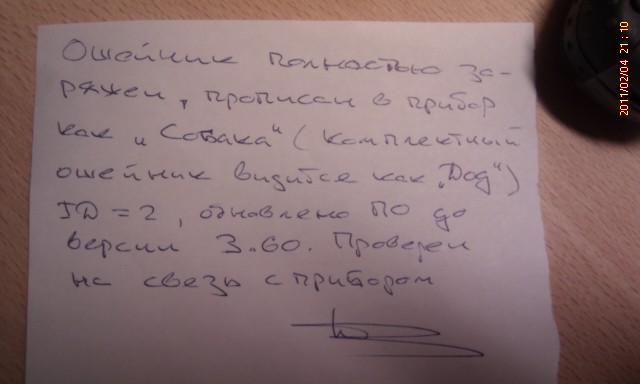 Ошейник полностью за-
ряжен, прописан в прибор
как „Собака“ (комплектный
ошейник видится как „Dog“)
ID = 2, обновлено ПО до
версии 3.60. Проверен
на связь с прибором
2011/02/04 21:10